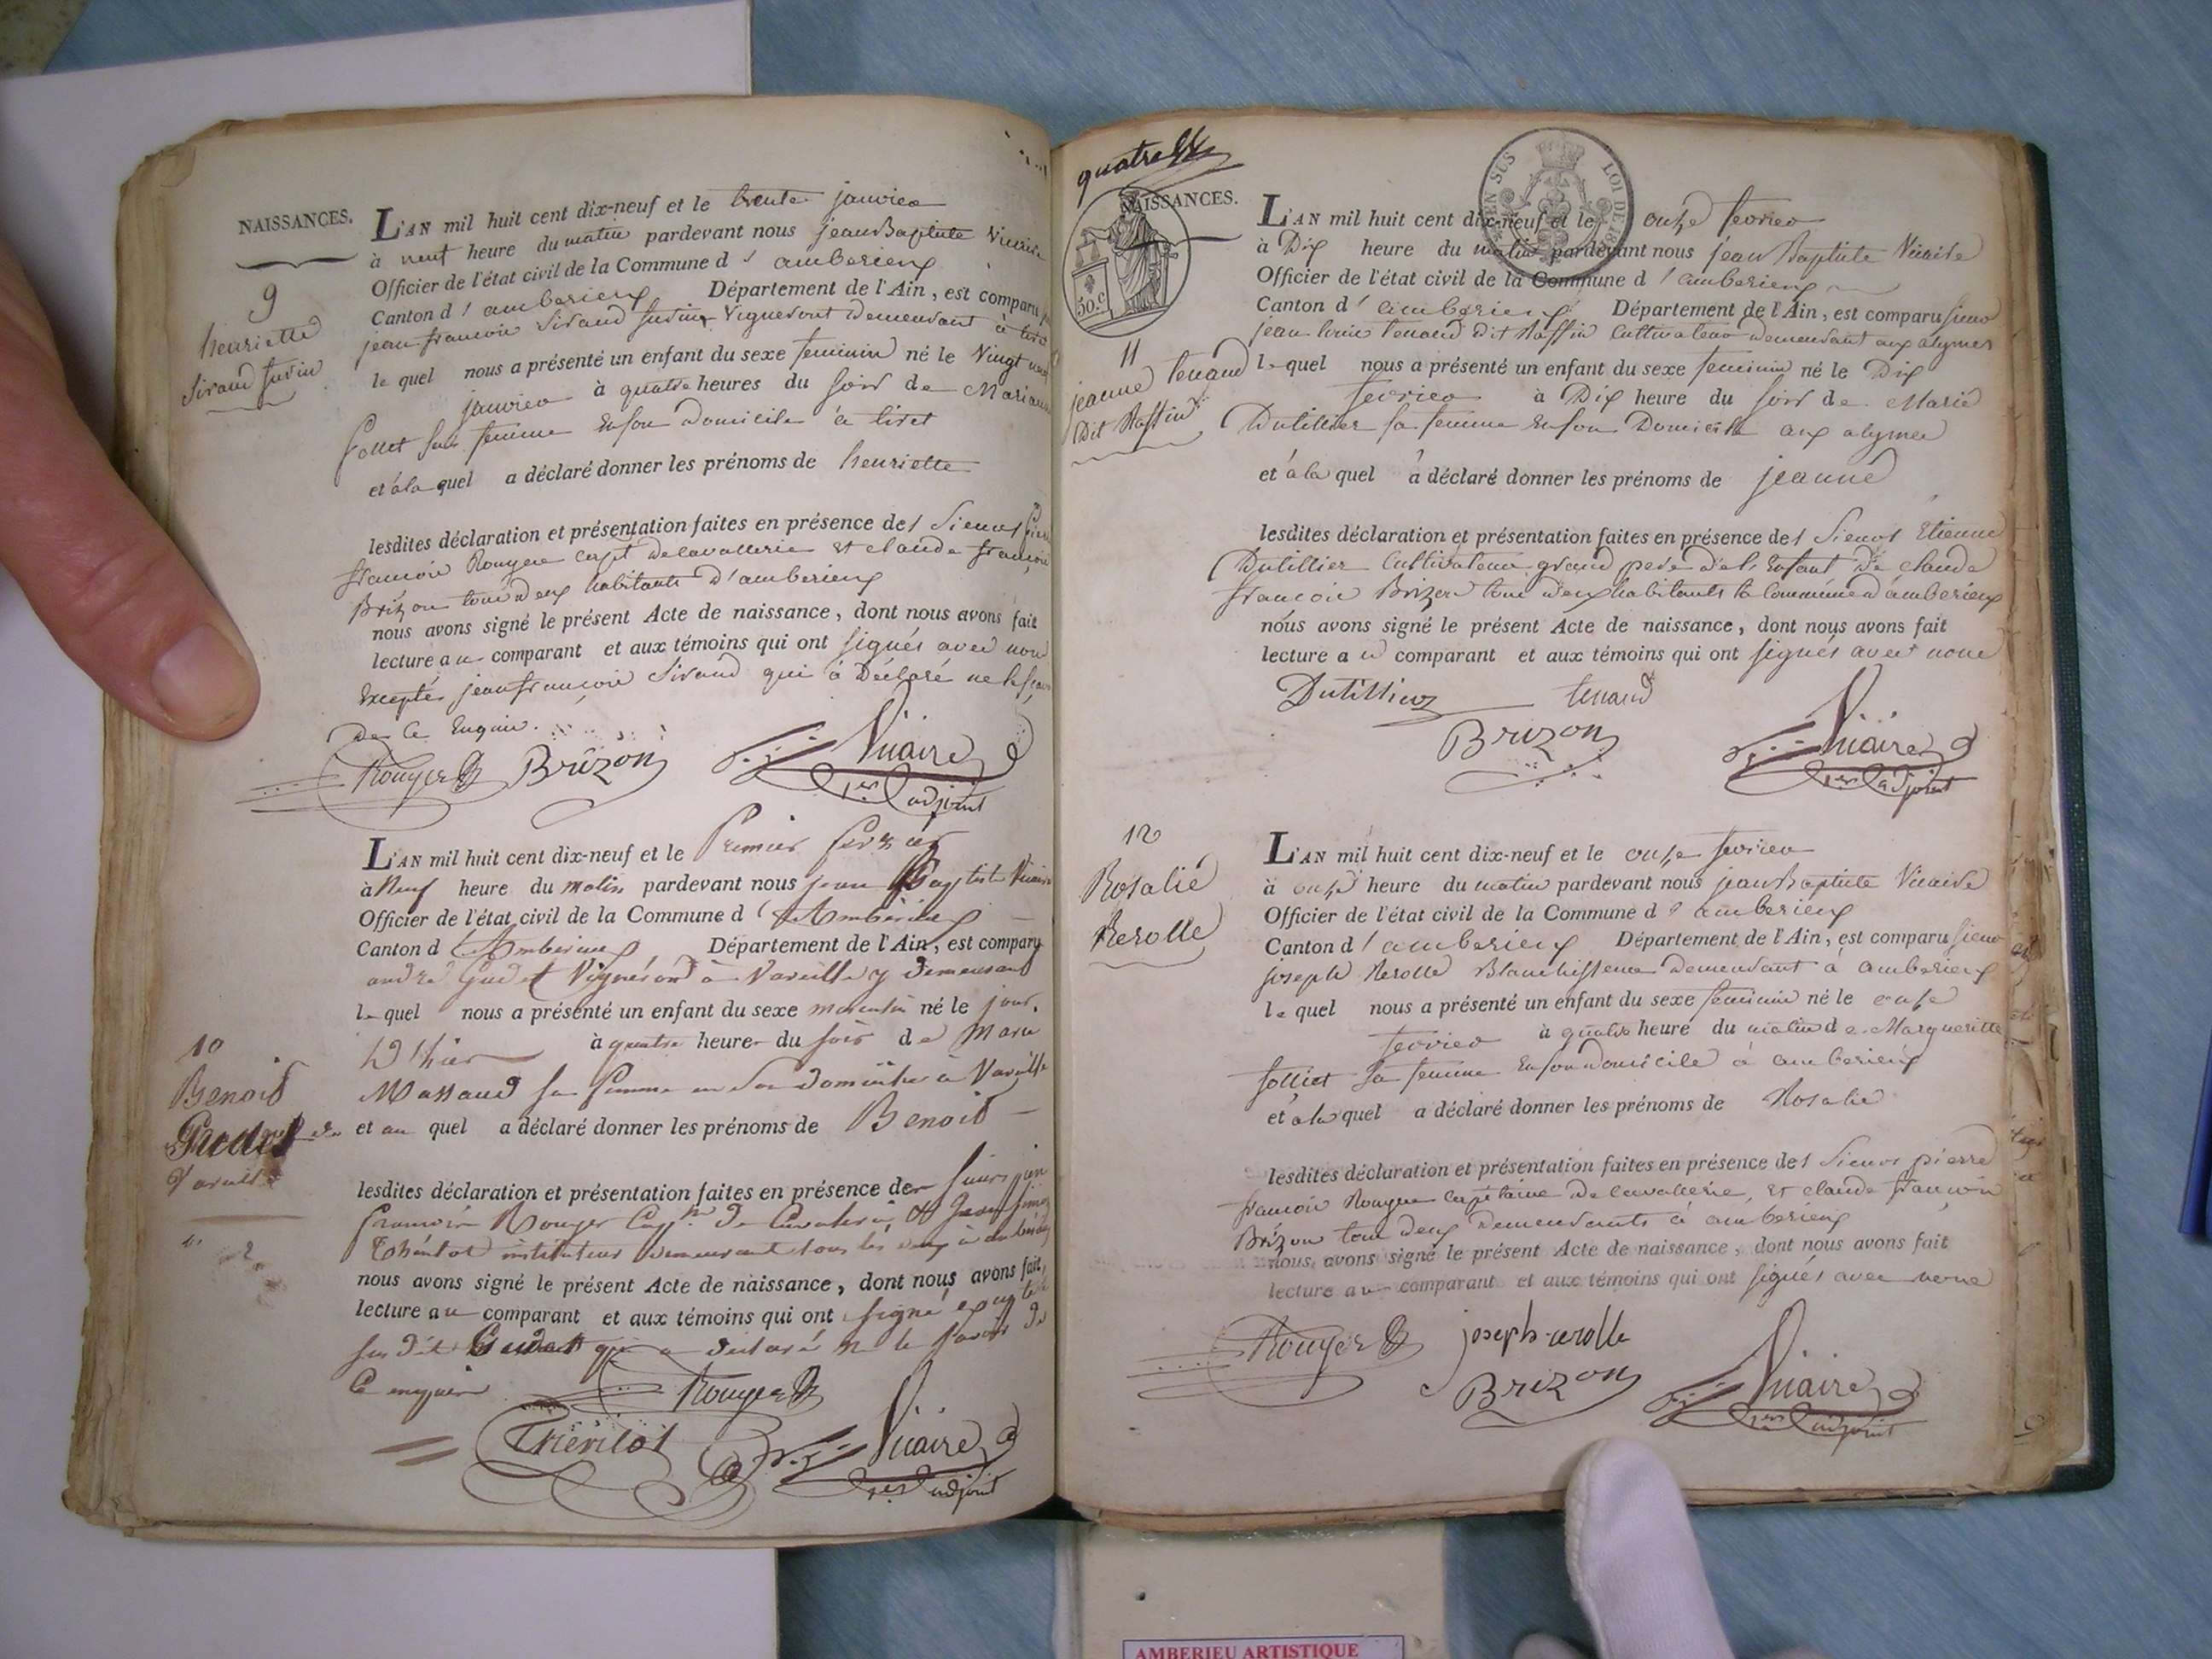 NAISSANCES.
L'AN mil huit cent dix-neuf et le trente janvier
à neuf heure du matin pardevant nous jean Baptiste Vicaire
Officier de l'état civil de la Commune d' amberieux
Canton d' amberieux Département de l'Ain, est comparu
jean francois Sirand Vigneront Demeurant à tiret
le quel nous a présenté un enfant du sexe feminin né le Vingt neuf
janvier à quatre heures du soir de Marianne
sa femme En son Domicile à tiret
et à la quel a déclaré donner les prénoms de henriette
9
henriette
Sirand
lesdites déclaration et présentation faites en présence des Sieurs
francois Rouyer capit de cavallerie et claude francois
Brizon tous deux habitants d'amberieux
nous avons signé le présent Acte de naissance, dont nous avons fait
lecture au comparant et aux témoins qui ont signés avec nous
Excepter jean francois Sirand qui à Déclaré ne le
De Ce Enquis.
Rouyer Brizon Vicaire
1er adjoint
L'AN mil huit cent dix-neuf et le Premier fevrier
à Neuf heure du matin pardevant nous jean Baptiste Vicaire
Officier de l'état civil de la Commune d' Amberieux
Canton d' Amberieux Département de l'Ain, est comparu
andré Gudet Vigneron à Vareille y demeurant
le quel nous a présenté un enfant du sexe masculin né le jour
D'hier à quatre heure du soir de Marie
Massaud sa femme en son domicile à Vareille
et au quel a déclaré donner les prénoms de Benoit
10
Benoit
Gudet
Vareille
lesdites déclaration et présentation faites en présence de sieurs
francois Rouyer Capne de Cavalerie et Jean
Thévilot instituteur demeurant tous les deux à amberieux
nous avons signé le présent Acte de naissance, dont nous avons fait
lecture au comparant et aux témoins qui ont signé excepté le
sus dit Gudet qui a déclaré ne le savoir de
Ce enquis
Rouyer
Thévilot Vicaire
1er adjoint
quatre
NAISSANCES.
50.c
EN SUS LOI DE
L'AN mil huit cent dix-neuf et le onze fevrier
à Dix heure du matin pardevant nous jean Baptiste Vicaire
Officier de l'état civil de la Commune d' amberieux
Canton d' amberieux Département de l'Ain, est comparu sieur
jean louis tenand Dit Raffin Cultivateur demeurant aux alymes
le quel nous a présenté un enfant du sexe feminin né le Dix
fevrier à Dix heure du soir de Marie
Dutillier sa femme En son Domicile aux alymes
et à la quel à déclaré donner les prénoms de jeanne
11
jeanne tenand
Dit Raffin
lesdites déclaration et présentation faites en présence des Sieurs Etienne
Dutillier Cultivateur grand pere de l'Enfant De claude
francois Brizon tous deux habitants la Commune d'amberieux
nous avons signé le présent Acte de naissance, dont nous avons fait
lecture au comparant et aux témoins qui ont signés avec nous
Dutillier tenand
Brizon Vicaire
1er adjoint
L'AN mil huit cent dix-neuf et le onze fevrier
à onze heure du matin pardevant nous jean Baptiste Vicaire
Officier de l'état civil de la Commune d' amberieux
Canton d' amberieux Département de l'Ain, est comparu sieur
joseph Rerolle Blanchisseur Demeurant à amberieux
le quel nous a présenté un enfant du sexe feminin né le onze
fevrier à quatre heure du matin de Margueritte
folliet sa femme En son domicile à amberieux
et à la quel a déclaré donner les prénoms de Rosalie
12
Rosalie
Rerolle
lesdites déclaration et présentation faites en présence des Sieurs pierre
francois Rouyer capitaine de cavallerie, et claude francois
Brizon tous deux Demeurants à amberieux
nous avons signé le présent Acte de naissance, dont nous avons fait
lecture au comparant et aux témoins qui ont signés avec nous
Rouyer joseph rerolle
Brizon Vicaire
1er adjoint
AMBERIEU ARTISTIQUE